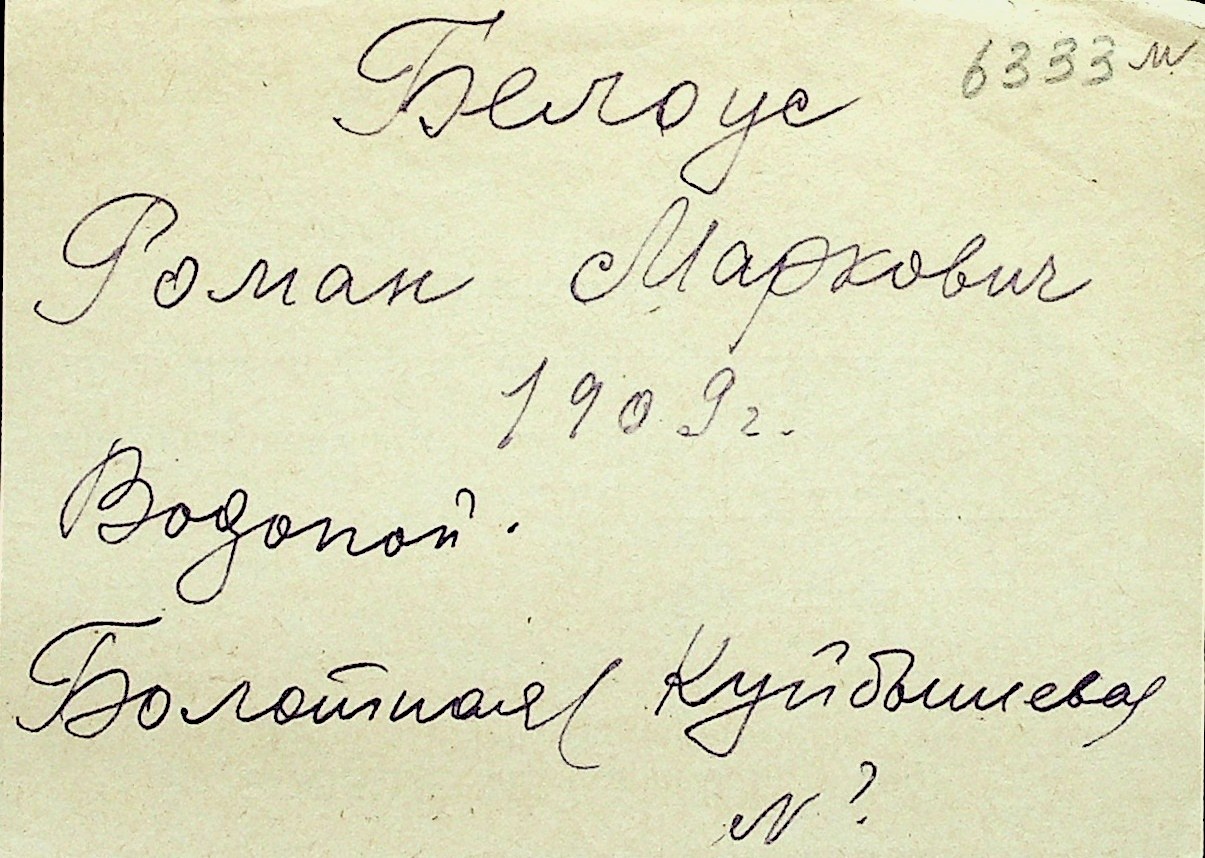 6333м
Белоус
Роман Маркович
1909г.
Водопой.
Болотная( Куйбышева)
N?